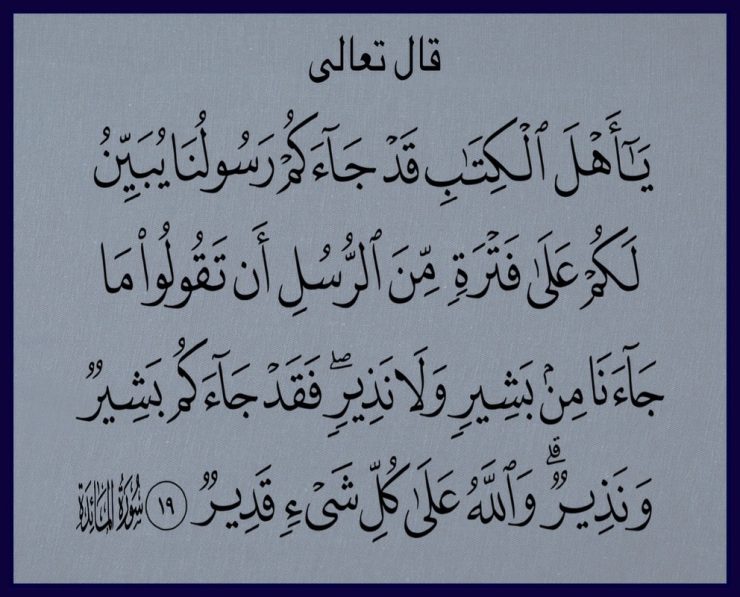 قال تعالى
يَـٰٓأَهْلَ ٱلْكِتَـٰبِ قَدْ جَآءَكُمْ رَسُولُنَا يُبَيِّنُ
لَكُمْ عَلَىٰ فَتْرَةٍ مِّنَ ٱلرُّسُلِ أَن تَقُولُوا۟ مَا
جَآءَنَا مِنۢ بَشِيرٍ وَلَا نَذِيرٍ ۖ فَقَدْ جَآءَكُم بَشِيرٌ
وَنَذِيرٌ ۗ وَٱللَّهُ عَلَىٰ كُلِّ شَىْءٍ قَدِيرٌ ١٩ سُورَةُ المَائِدَة